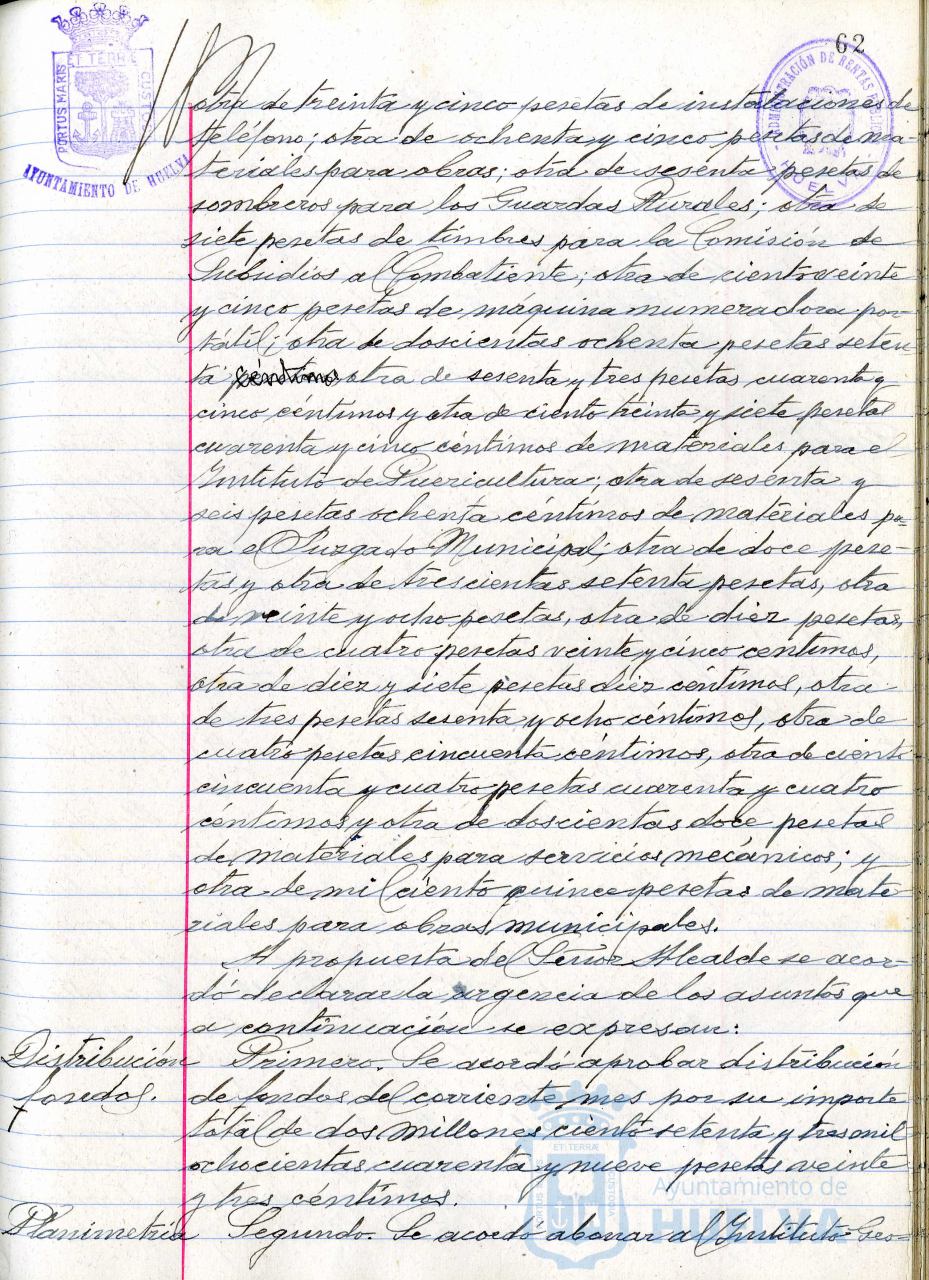 62
PORTUS MARIS ET TERRÆ CUSTODIA
AYUNTAMIENTO DE HUELVA
ADMINISTRACIÓN DE RENTAS PÚBLICAS
HUELVA
otra de treinta y cinco pesetas de instalaciones de
teléfono; otra de ochenta y cinco pesetas de ma-
teriales para obras; otra de sesenta pesetas de
sombreros para los Guardas Rurales; otra de
siete pesetas de timbres para la Comisión de
Subsidios al Combatiente; otra de ciento veinte
y cinco pesetas de máquina numeradora por-
tátil; otra de doscientas ochenta pesetas seten-
ta céntimos otra de sesenta y tres pesetas cuarenta y
cinco céntimos y otra de ciento treinta y siete pesetas
cuarenta y cinco céntimos de materiales para el
Instituto de Puericultura; otra de sesenta y
seis pesetas ochenta céntimos de materiales pa-
ra el Juzgado Municipal; otra de doce pese-
tas y otra de trescientas setenta pesetas, otra
de veinte y ocho pesetas, otra de diez pesetas,
otra de cuatro pesetas veinte y cinco centimos,
otra de diez y siete pesetas diez céntimos, otra
de tres pesetas sesenta y ocho céntimos, otra de
cuatro pesetas cincuenta céntimos, otra de ciento
cincuenta y cuatro pesetas cuarenta y cuatro
céntimos y otra de doscientas doce pesetas
de materiales para servicios mecánicos; y
otra de mil ciento quince pesetas de mate-
riales para obras municipales.
A propuesta del Señor Alcalde se acor-
dó declarar la urgencia de los asuntos que
a continuación se expresan:
Distribución Primero. Se acordó aprobar distribución
fondos. de fondos del corriente mes por su importe
total de dos millones ciento setenta y tres mil
ochocientas cuarenta y nueve pesetas veinte
y tres céntimos.
Planimetría Segundo. Se acordó abonar al Instituto Geo-
ET TERRÆ
Ayuntamiento de
HUELVA